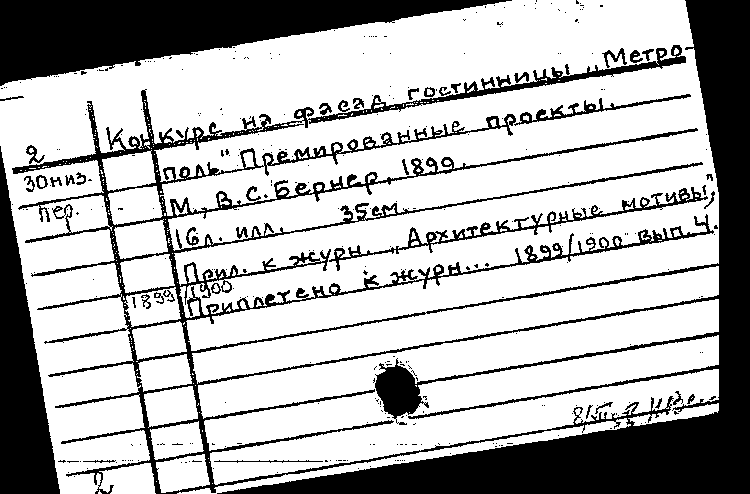 2 Конкурс на фасад гостинницы „Метро-
30 низ. поль" Премированные проекты.
пер. М., В.С. Бернер, 1899.
16 л. илл. 35 см.
Прил. к журн. „Архитектурные мотивы",
1899/1900 Приплетено к журн... 1899/1900 вып. 4.
2